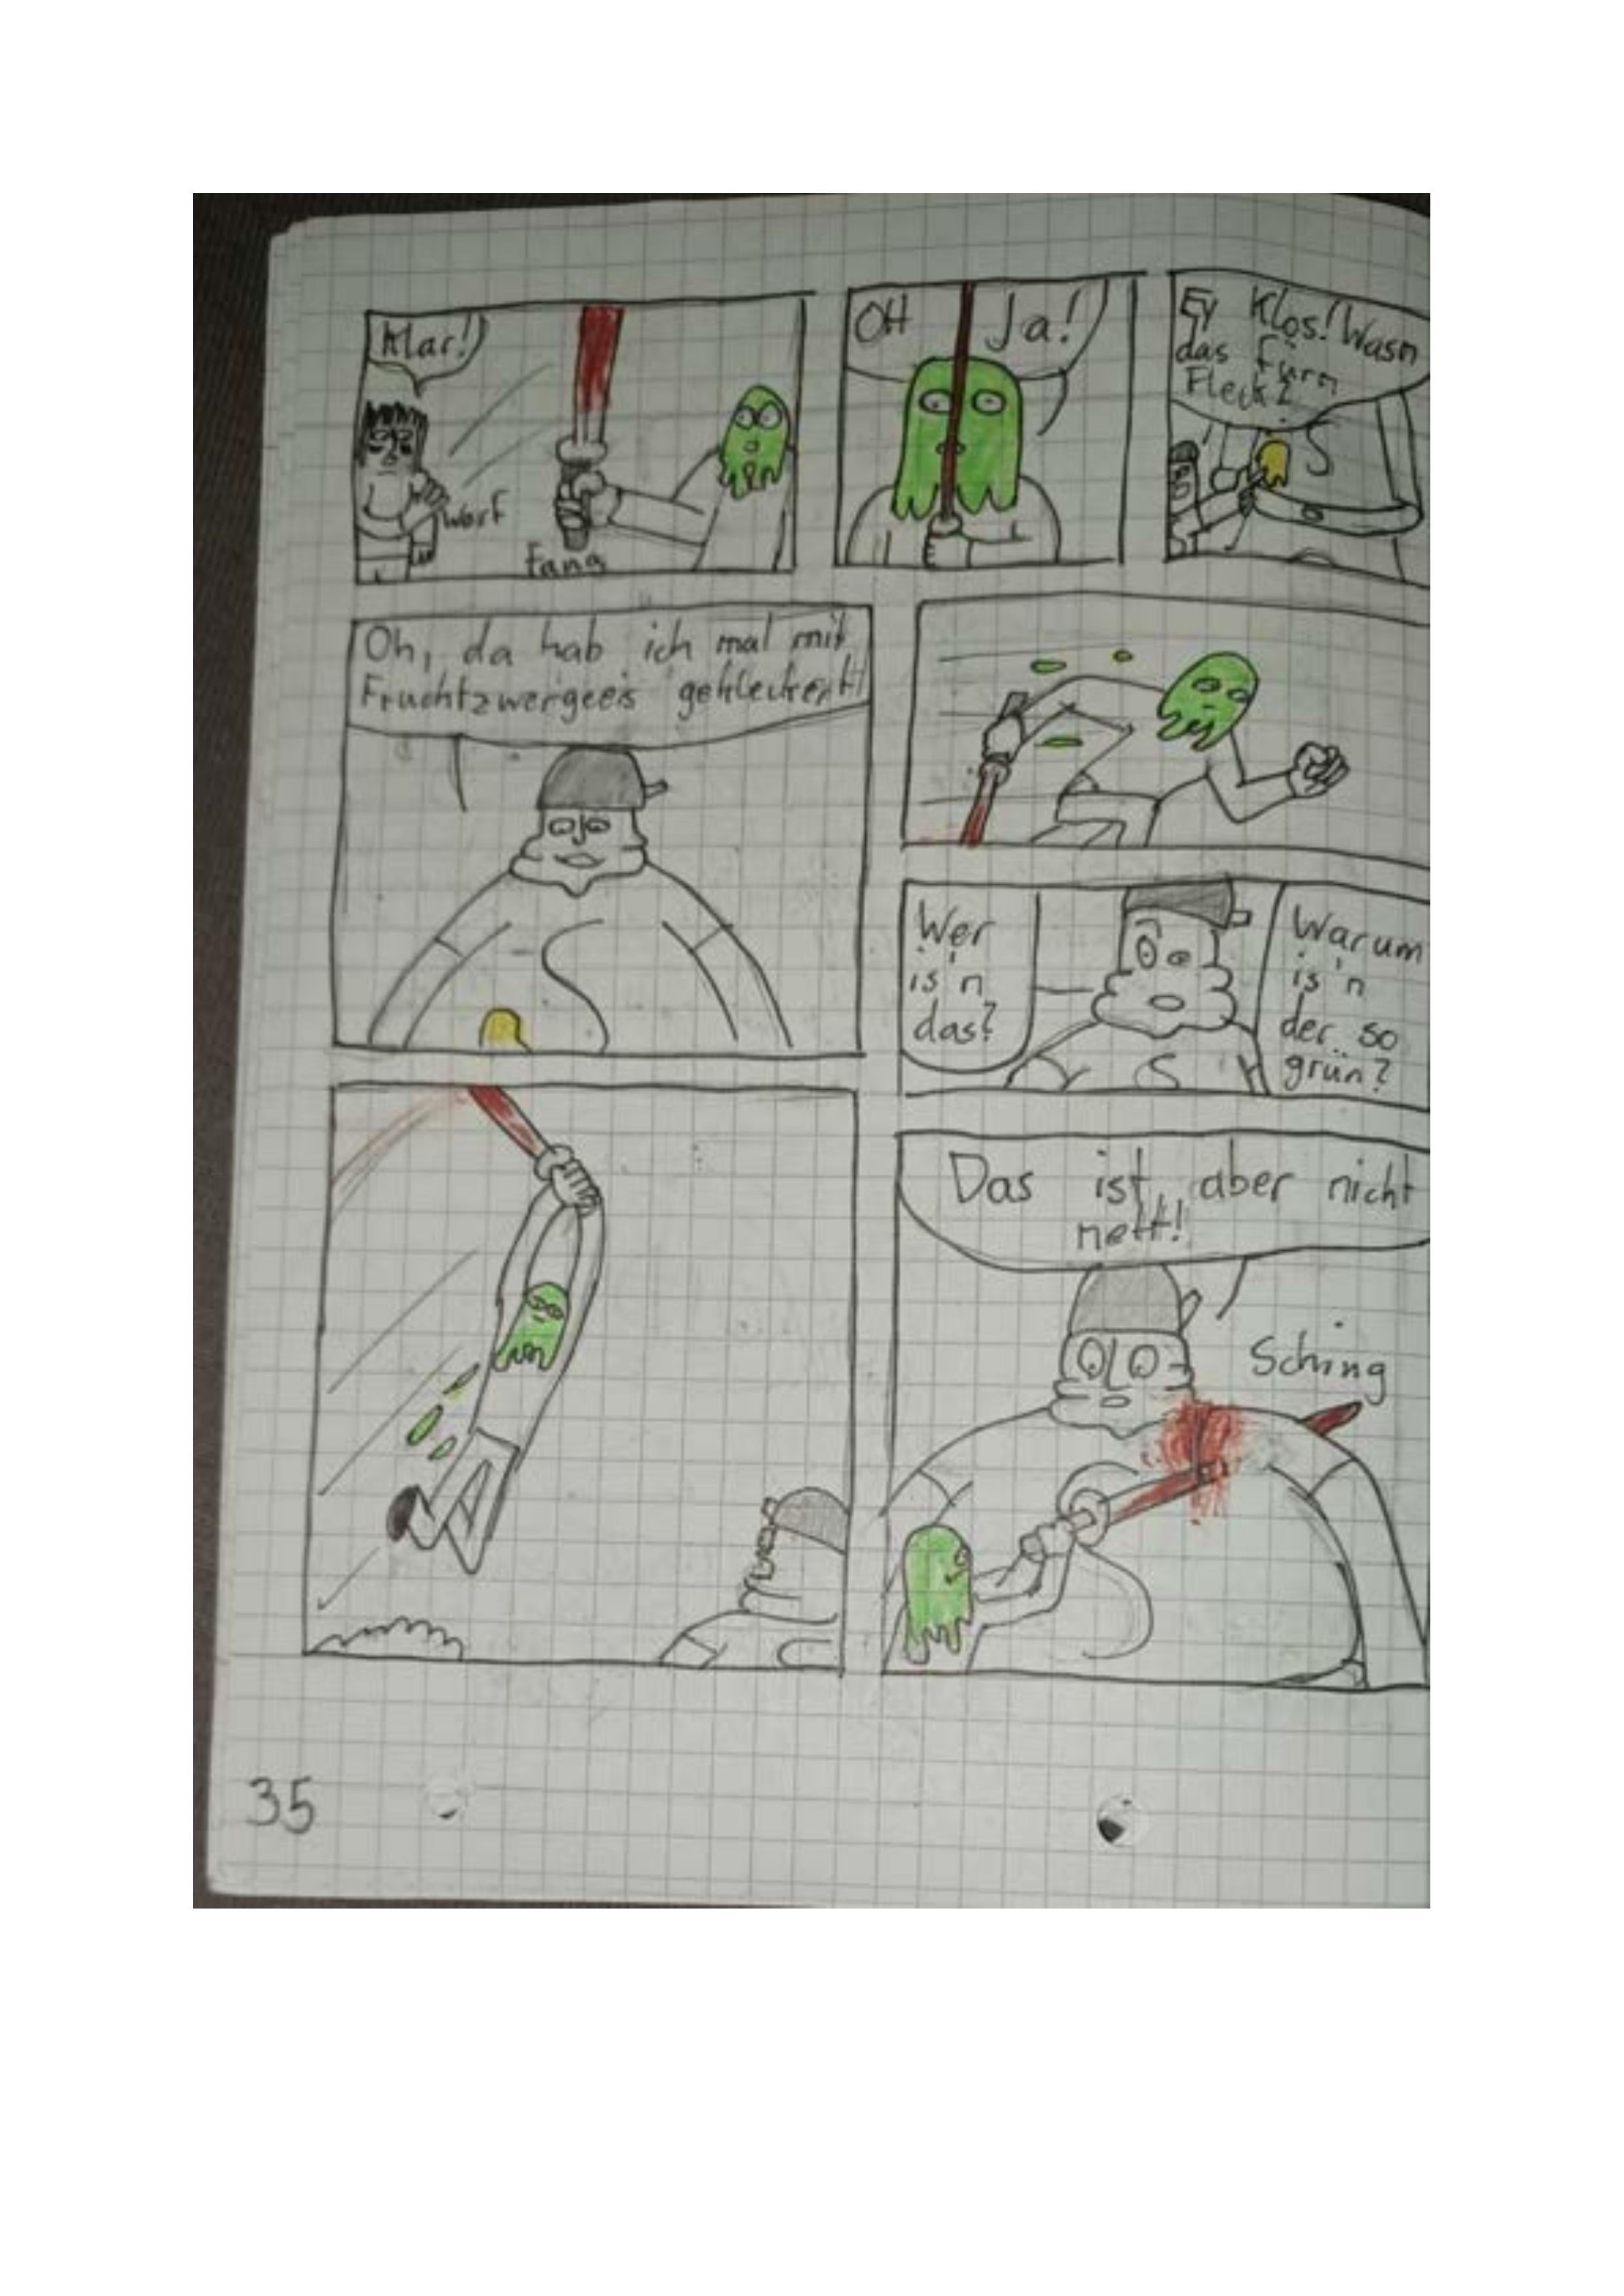 Klar!
worf
Fang
OH Ja!
Ey Klos! Wasn
das fürn
Fleck?
S
Oh, da hab ich mal mit
Fruchtzwergeeis gekleckert!
Wer
is'n
das?
Warum
is'n
der so
grün?
S
Das ist aber nicht
nett!
Sching
35